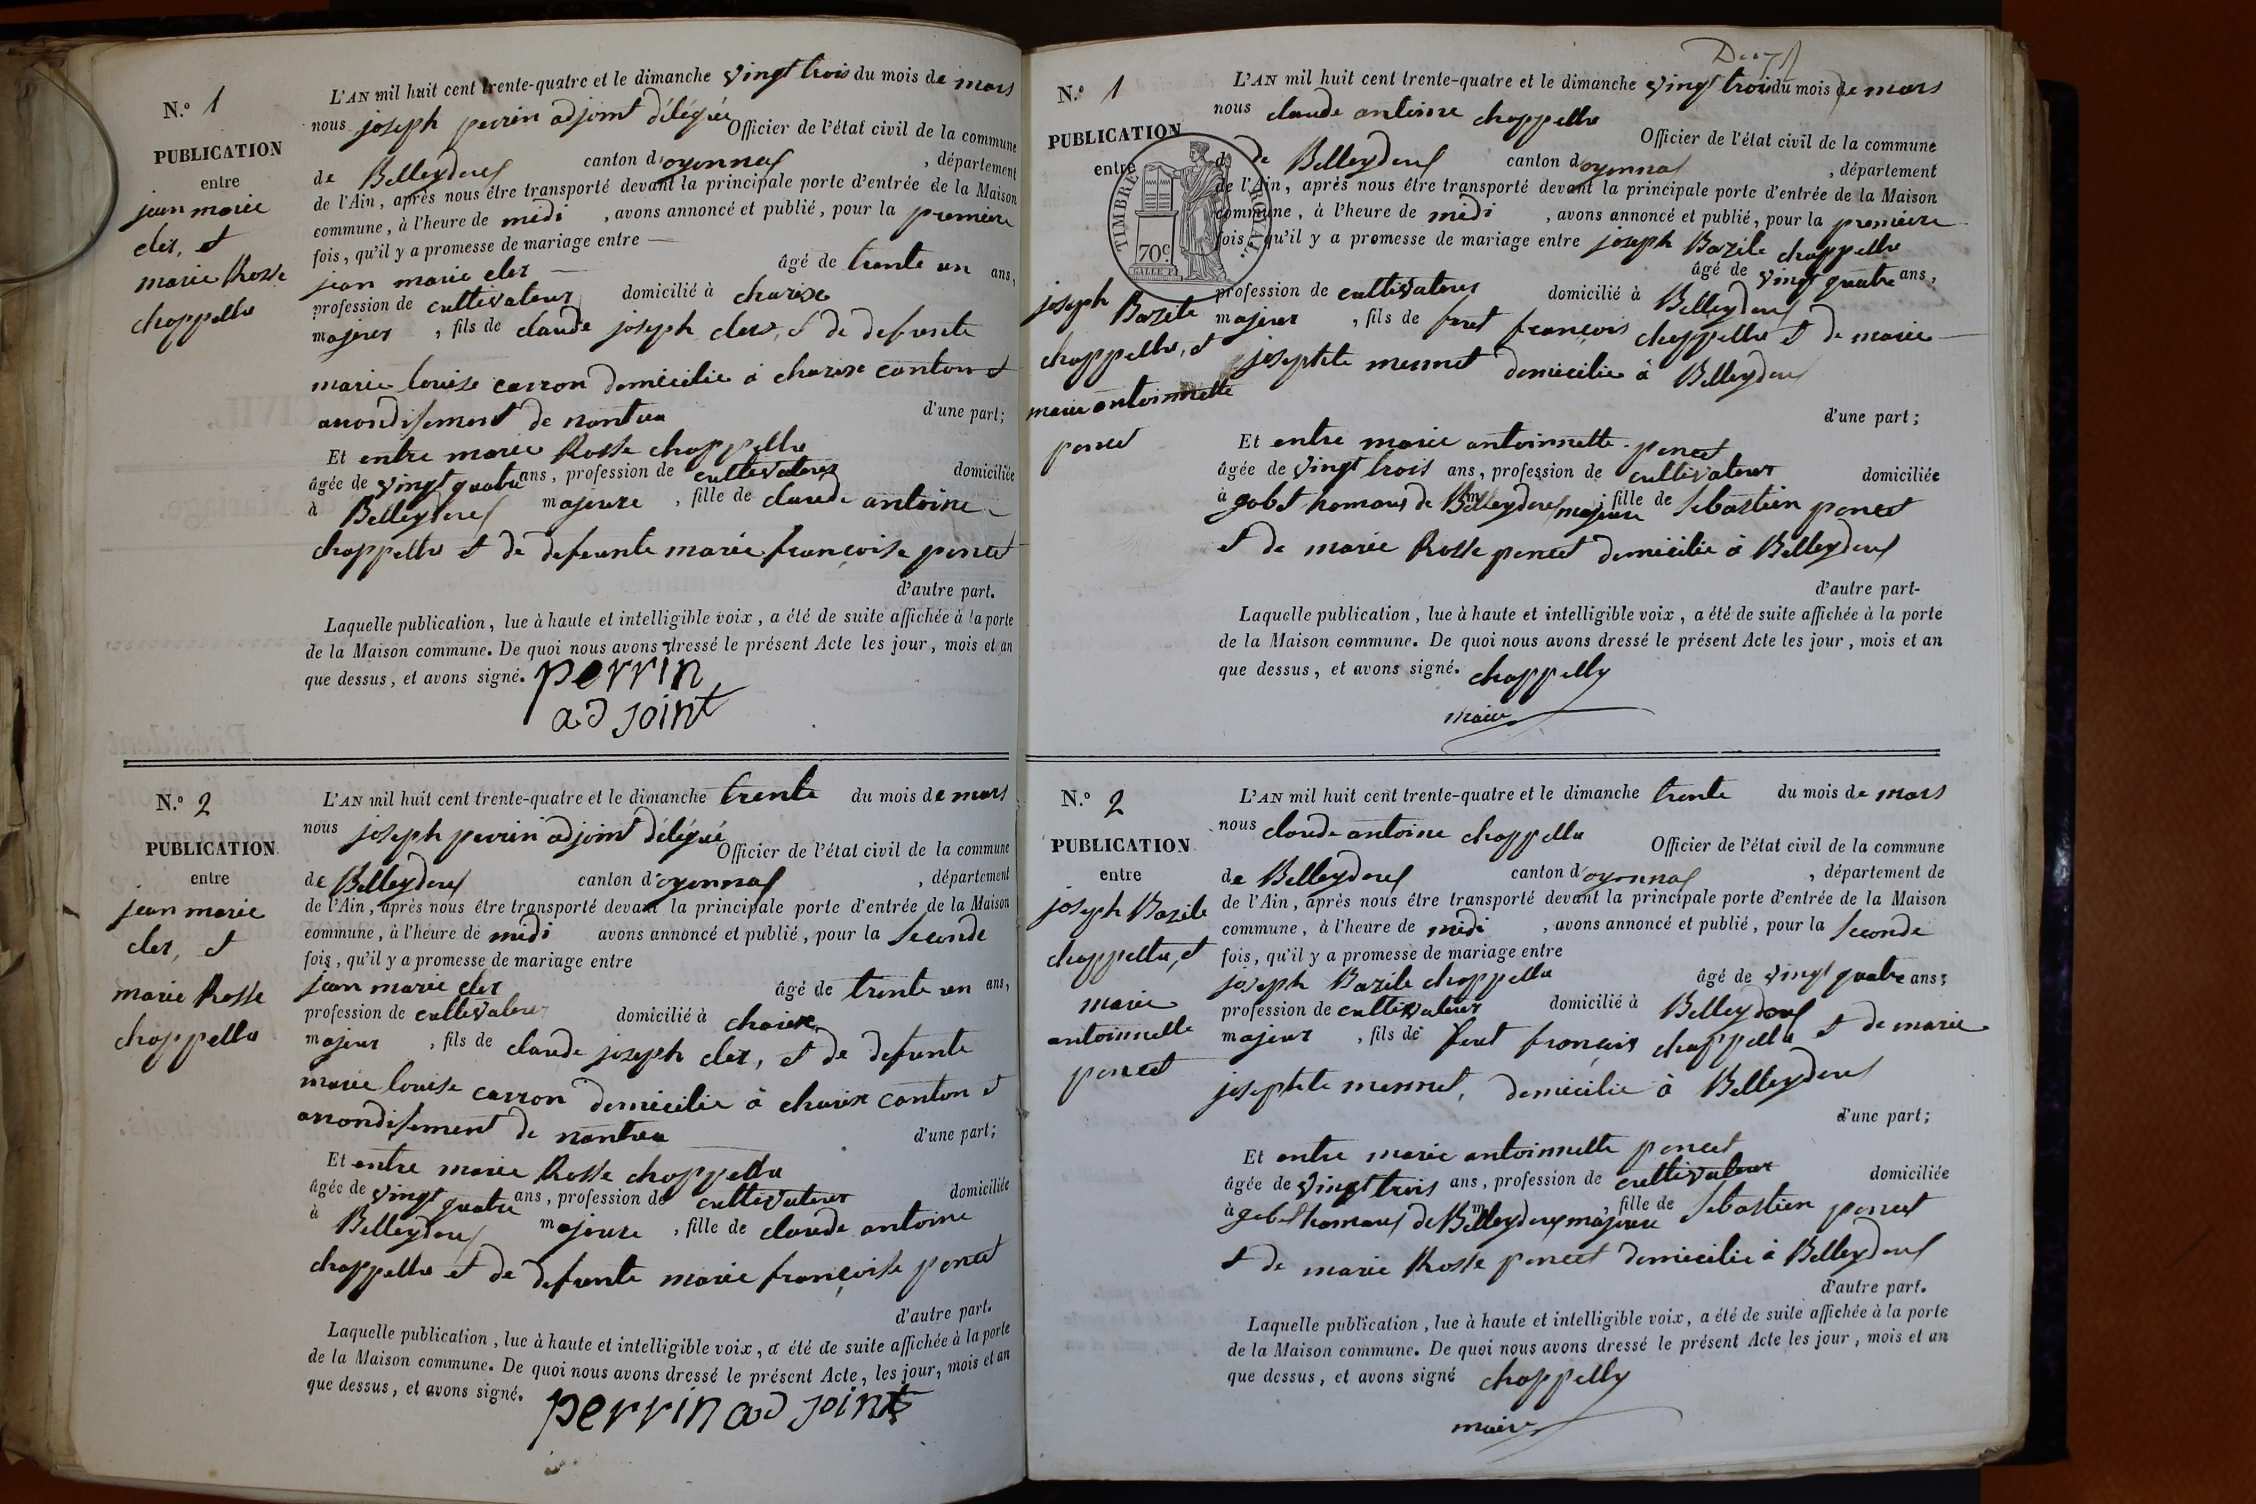 N.º 1
PUBLICATION
entre
jean marie
cler, et
marie Rosse
chappellu
L'AN mil huit cent trente-quatre et le dimanche vingt trois du mois de mars
nous joseph perrin adjoint délégué Officier de l'état civil de la commune
de Belleydoux canton d'oyonnax, département
de l'Ain, après nous être transporté devant la principale porte d'entrée de la Maison
commune, à l'heure de midi, avons annoncé et publié, pour la premiere
fois, qu'il y a promesse de mariage entre
jean marie cler âgé de trente un ans,
profession de cultivateur domicilié à charix
majeur, fils de claude joseph cler, et de defunte
marie louise carron domicilie à charix canton et
arrondissement de nantua d'une part;
Et entre marie Rosse chappellu
âgée de vingt quatre ans, profession de cultivateur domiciliée
à Belleydoux majeure, fille de claude antoine
chappellu et de defunte marie françoise poncet
d'autre part.
Laquelle publication, lue à haute et intelligible voix, a été de suite affichée à la porte
de la Maison commune. De quoi nous avons dressé le présent Acte les jour, mois et an
que dessus, et avons signé. perrin
adjoint
N.º 2
PUBLICATION
entre
jean marie
cler, et
marie Rosse
chappellu
L'AN mil huit cent trente-quatre et le dimanche trente du mois de mars
nous joseph perrin adjoint délégué Officier de l'état civil de la commune
de Belleydoux canton d'oyonnax, département
de l'Ain, après nous être transporté devant la principale porte d'entrée de la Maison
commune, à l'heure de midi avons annoncé et publié, pour la seconde
fois, qu'il y a promesse de mariage entre
jean marie cler âgé de trente un ans,
profession de cultivateur domicilié à charix
majeur, fils de claude joseph cler, et de defunte
marie louise carron domicilie à charix canton et
arrondissement de nantua d'une part;
Et entre marie Rosse chappellu
âgée de vingt quatre ans, profession de cultivateur domiciliée
à Belleydoux majeure, fille de claude antoine
chappellu et de defunte marie françoise poncet
d'autre part.
Laquelle publication, lue à haute et intelligible voix, a été de suite affichée à la porte
de la Maison commune. De quoi nous avons dressé le présent Acte, les jour, mois et an
que dessus, et avons signé. perrin adjoint
N.º 1
PUBLICATION
entre
TIMBRE ROYAL.
70c
joseph
Bazile
chappellu, et
marie antoinnette
poncet
L'AN mil huit cent trente-quatre et le dimanche vingt trois du mois de mars
nous claude antoine chappellu Officier de l'état civil de la commune
de Belleydoux canton d'oyonnax, département
de l'Ain, après nous être transporté devant la principale porte d'entrée de la Maison
commune, à l'heure de midi, avons annoncé et publié, pour la premiere
fois, qu'il y a promesse de mariage entre joseph Bazile chappellu
âgé de vingt quatre ans,
profession de cultivateur domicilié à Belleydoux
majeur, fils de feut françois chappellu et de marie
josephte mermet domicilie à Belleydoux
d'une part;
Et entre marie antoinnette poncet
âgée de vingt trois ans, profession de cultivateur domiciliée
à gobet de Belleydoux majeure, fille de sebastien poncet
et de marie Rosse poncet domicilie à Belleydoux
d'autre part-
Laquelle publication, lue à haute et intelligible voix, a été de suite affichée à la porte
de la Maison commune. De quoi nous avons dressé le présent Acte les jour, mois et an
que dessus, et avons signé. chappelly
maire
N.º 2
PUBLICATION
entre
joseph Bazile
chappellu, et
marie
antoinnette
poncet
L'AN mil huit cent trente-quatre et le dimanche trente du mois de mars
nous claude antoine chappellu Officier de l'état civil de la commune
de Belleydoux canton d'oyonnax, département de
de l'Ain, après nous être transporté devant la principale porte d'entrée de la Maison
commune, à l'heure de midi, avons annoncé et publié, pour la seconde
fois, qu'il y a promesse de mariage entre
joseph Bazile chappellu âgé de vingt quatre ans;
profession de cultivateur domicilié à Belleydoux
majeur, fils de feut françois chappellu et de marie
josephte mermet, domicilie à Belleydoux
d'une part;
Et entre marie antoinnette poncet
âgée de vingt trois ans, profession de cultivateur domiciliée
à gobet de Belleydoux majeure, fille de sebastien poncet
et de marie Rosse poncet domicilie à Belleydoux
d'autre part.
Laquelle publication, lue à haute et intelligible voix, a été de suite affichée à la porte
de la Maison commune. De quoi nous avons dressé le présent Acte les jour, mois et an
que dessus, et avons signé chappelly
maire